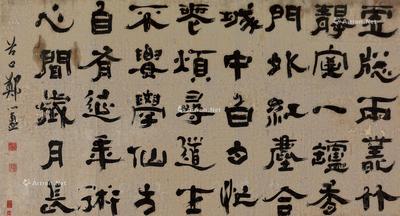 虛窗兩叢竹
靜室一爐香
門外紅塵合
城中白日忙
無煩尋道士
不要學仙方
自有延年術
心閒歲月長
谷口鄭簠